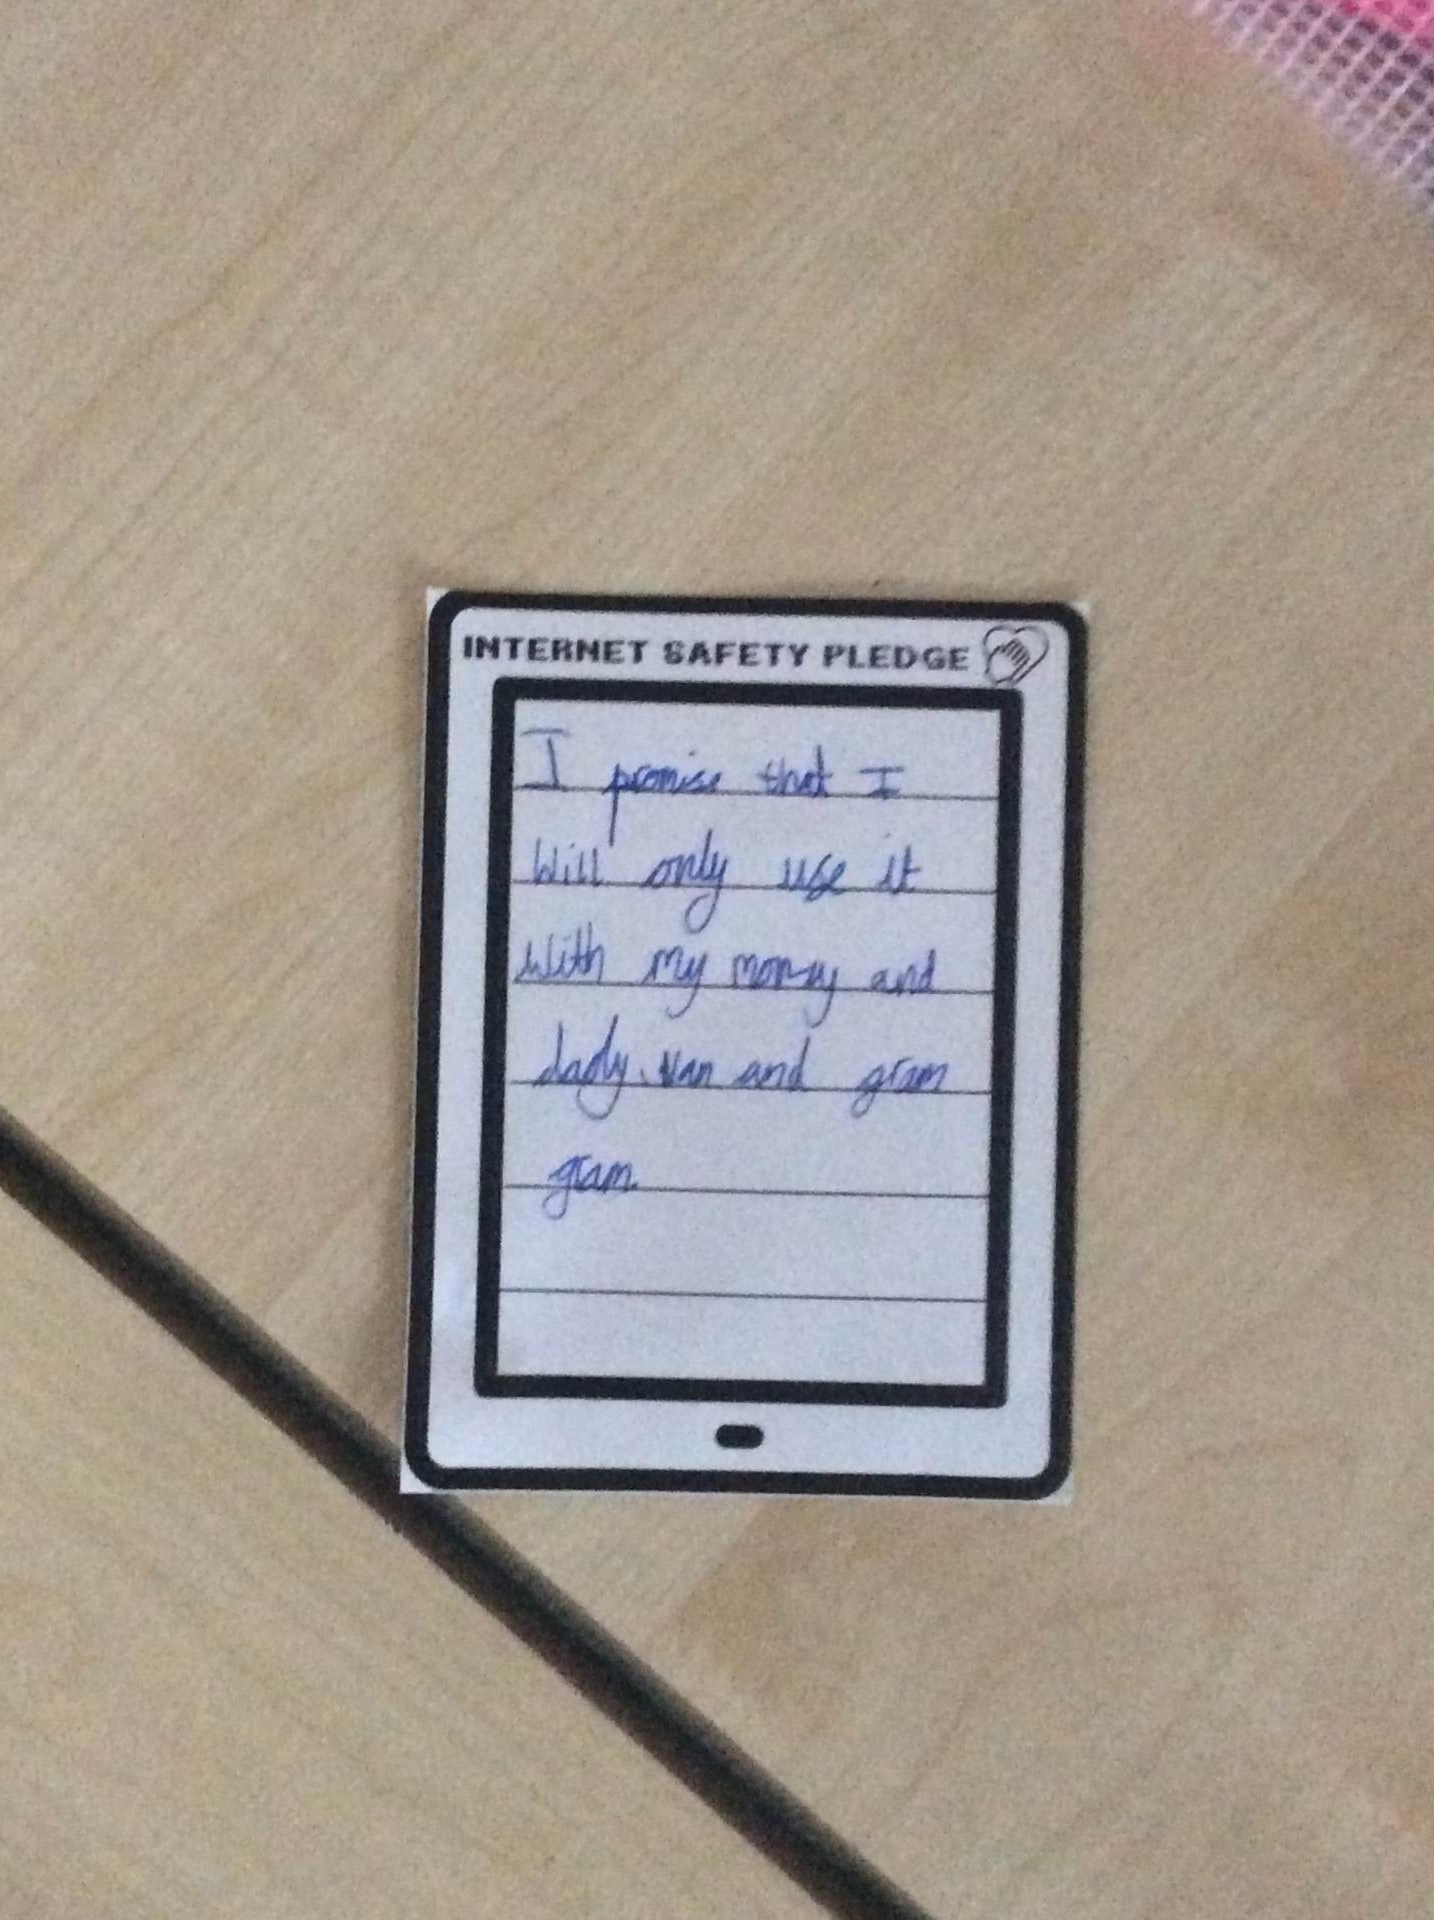 INTERNET SAFETY PLEDGE
I promise that I
Will only use it
With my momy and
dady. Nan and gram
gram.